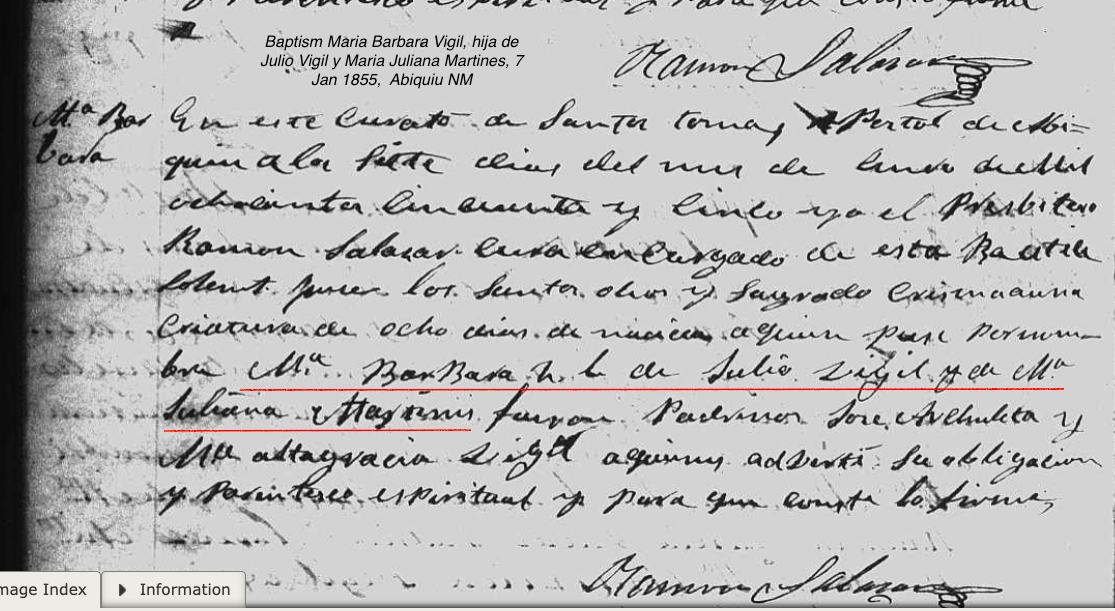 y Parentesco espiritual y para que conste lo firme
Baptism Maria Barbara Vigil, hija de
Julio Vigil y Maria Juliana Martines, 7
Jan 1855, Abiquiu NM
Ramon Salazar
Ma. Bar
bara
En este Curato de Santo tomas Postol de Abi=
quiu a los Siete dias del mes de Enero de Mil
ochocientos Cincuenta y Cinco yo el Presbitero
Ramon Salazar Cura encargado de esta Bautise
Solemt. puse los Santos oleos y Sagrado Crisma a una
Criatura de ocho dias de nacida a quien puse por nom-
bre Ma. BarBara h. l. de Julio Vigil y de Ma
Juliana Martines fueron Padrinos Jose Archuleta y
Ma altagracia Vigil a quienes adverti su obligacion
y Parentesco espiritual y para que conste lo firme,
Ramon Salazar
mage Index
Information